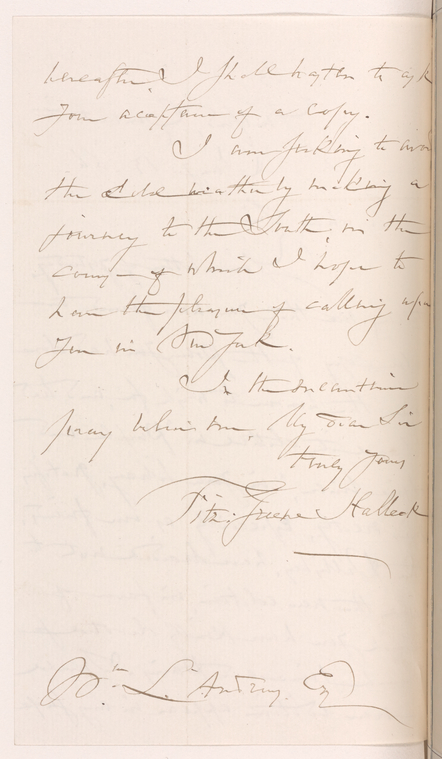 hereafter, I shall hasten to ask
Your acceptance of a copy.
I am seeking to avoid
the cold weather by making a
journey to the South, in the
course of which I hope to
have the pleasure of calling upon
You in New York.
In the meantime
pray believe me, My dear Sir
truly Yours
Fitz-Greene Halleck
Wm L. Andrews Esq